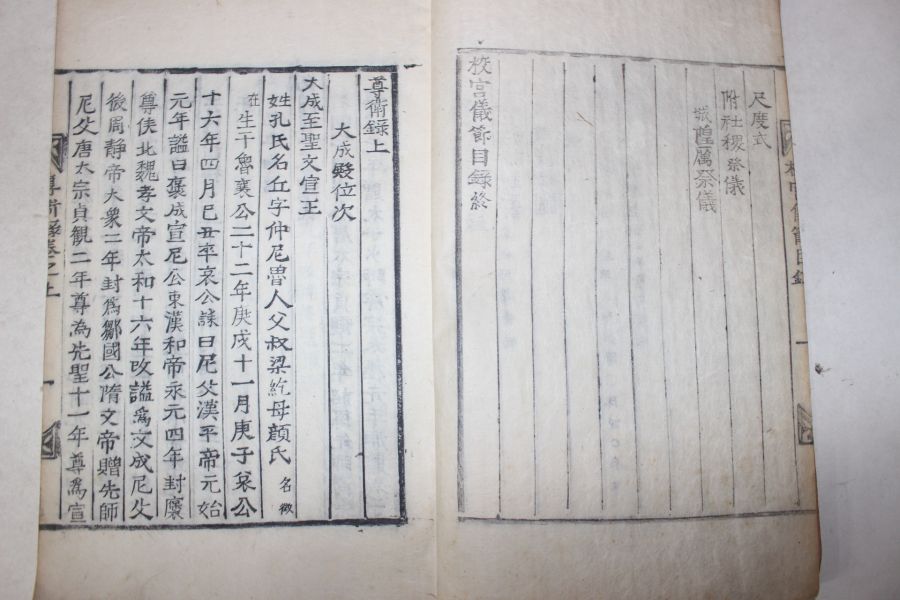 尺度式
附社稷祭儀
城隍厲祭儀
校宮儀節目錄終
尊衛錄上
大成殿位次
大成至聖文宣王
姓孔氏名丘字仲尼魯人父叔梁紇母顔氏名徵
在生于魯襄公二十二年庚戌十一月庚子哀公
十六年四月己丑卒哀公誄曰尼父漢平帝元始
元年謚曰褒成宣尼公東漢和帝永元四年封褒
尊侯北魏孝文帝太和十六年改謚爲文成尼父
後周靜帝大衆二年封爲鄒國公隋文帝贈先師
尼父唐太宗貞觀二年尊為先聖十一年尊爲宣